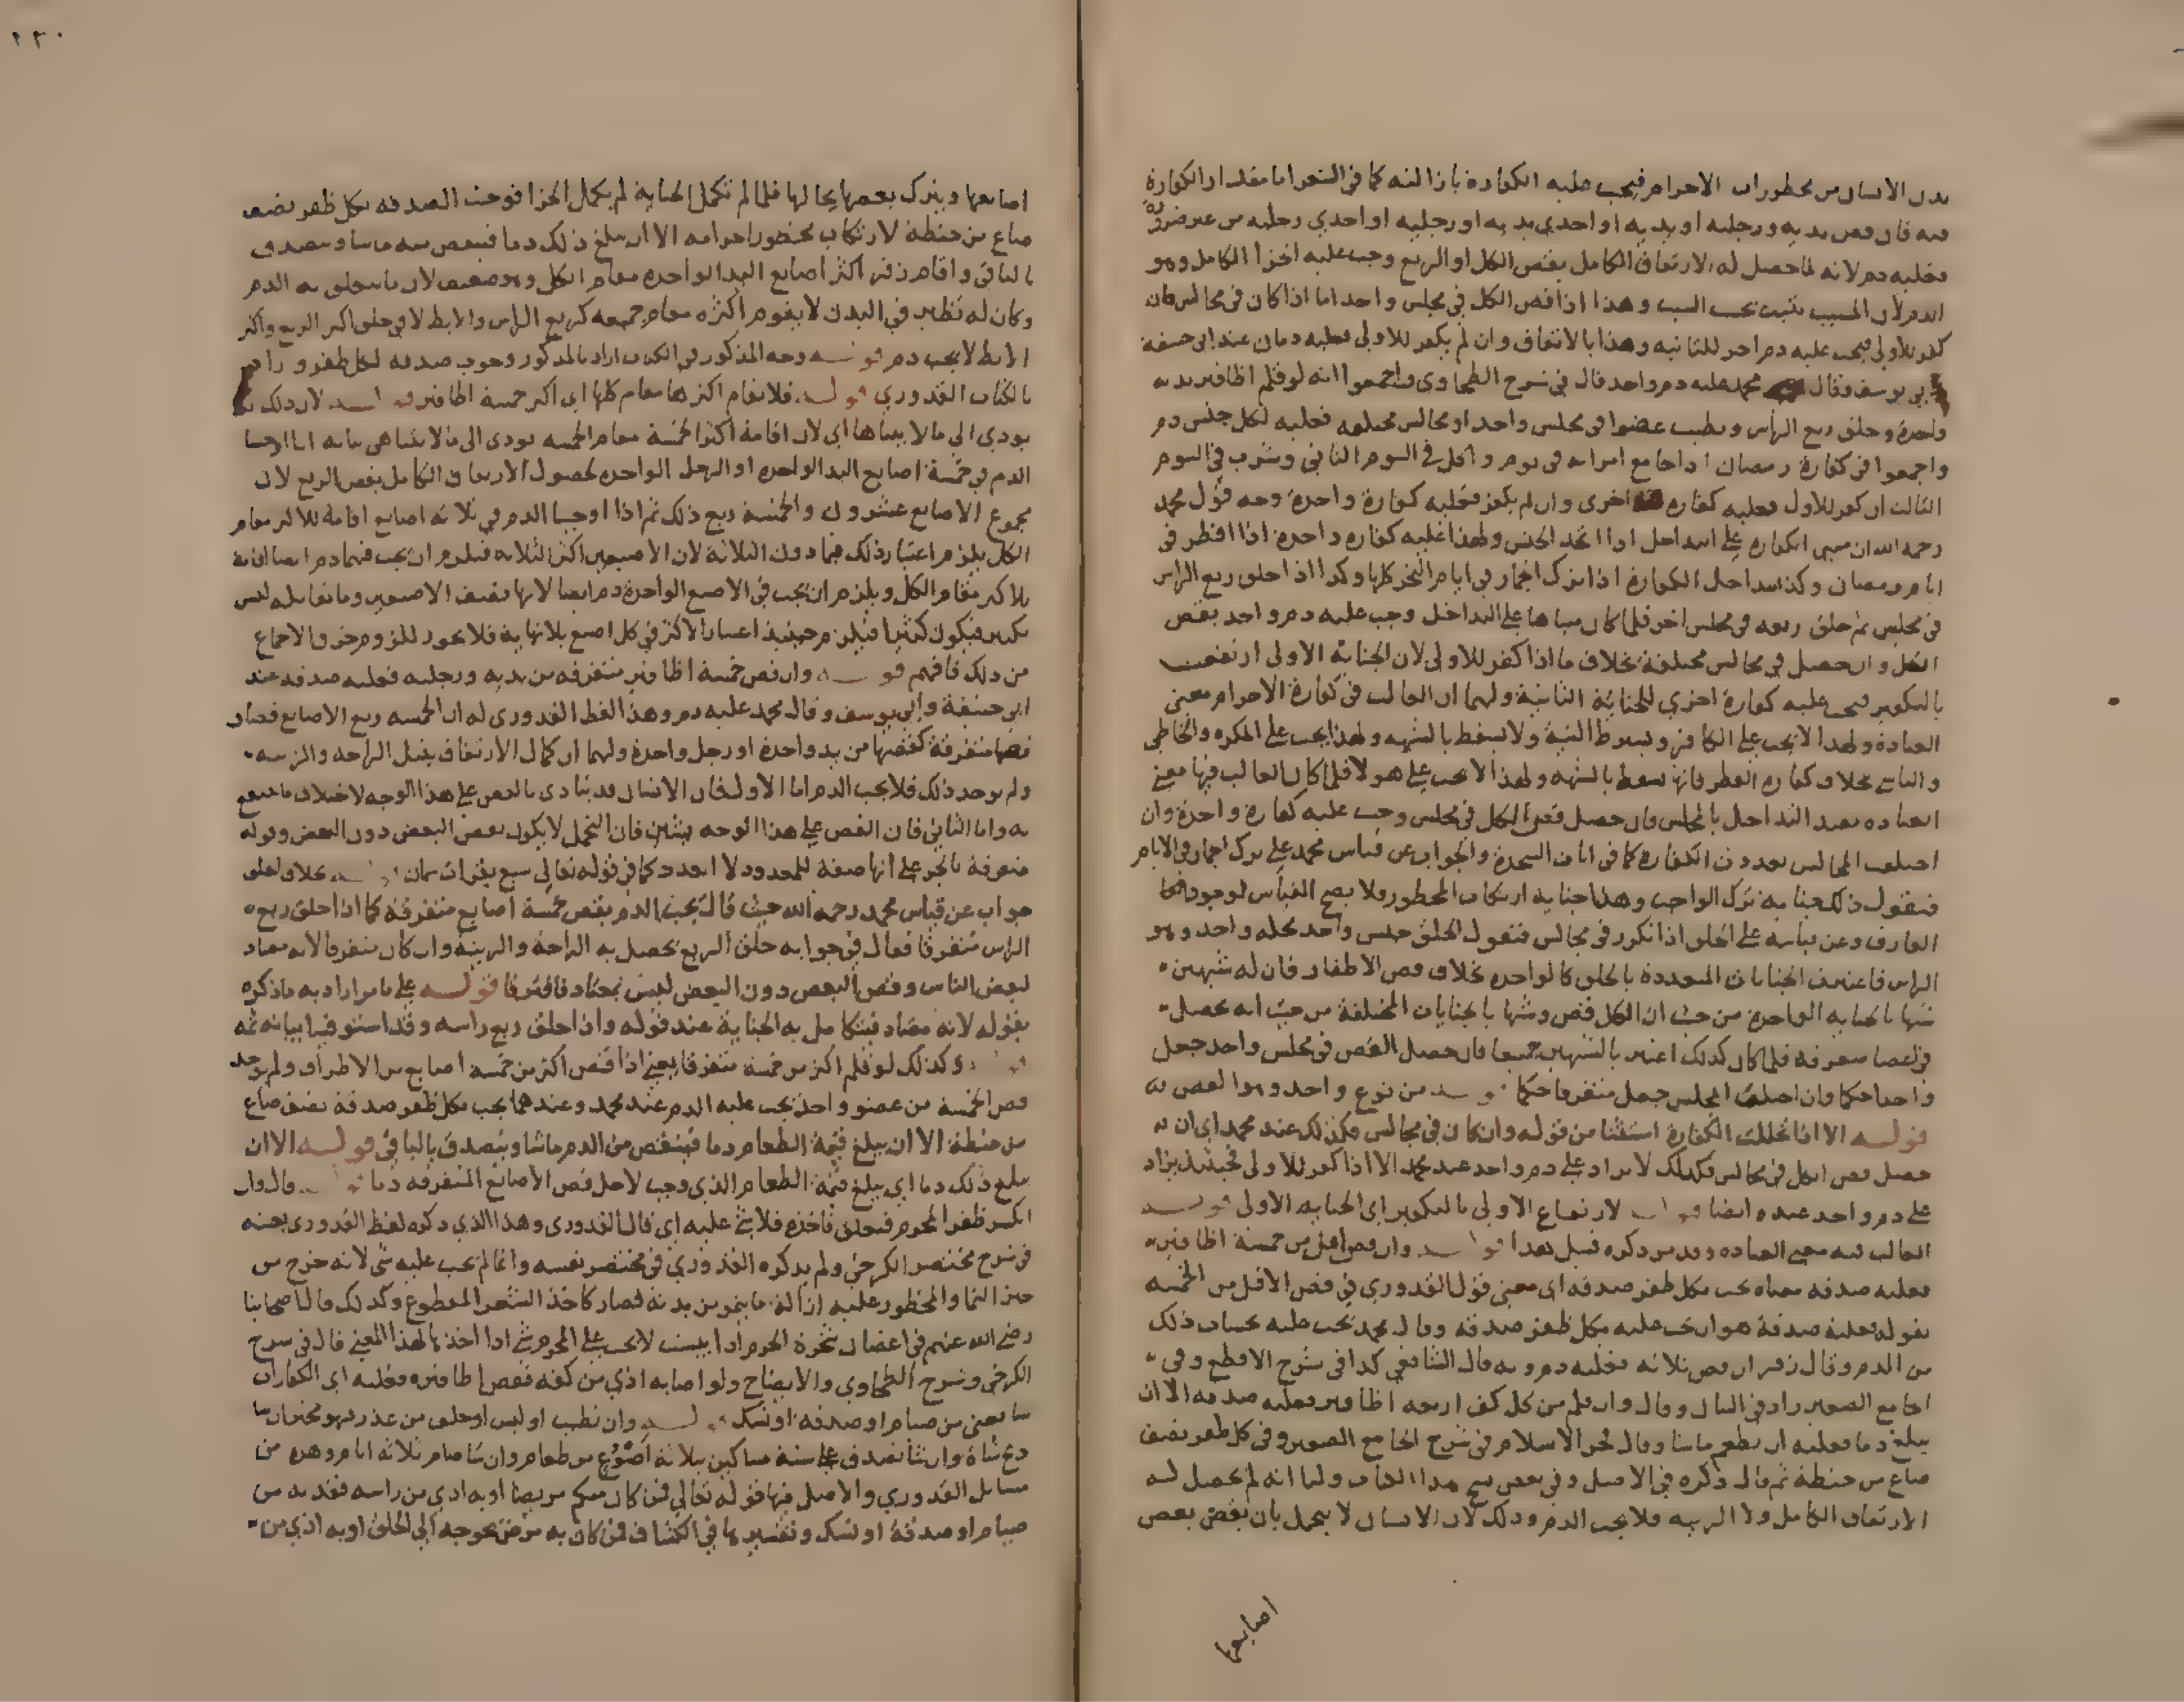 بدن الانسان من محظورات الاحرام فيجب عليه الكفارة بازالته كما في الشعر اما مقدار الكفارة
فيه فان قص يديه ورجليه او يديه او احدي يديه او رجليه او احدي رجليه من غير ضرورة
فعليه دم لانه لما حصل له الارتفاق الكامل بقص الكل او الربع وجب عليه الجزا الكامل وهو
الدم لان المسبب يثبت بحسب السبب وهذا اذا قص الكل في مجلس واحد اما اذا كان في مجالس فان
كفر للاولي فيجب عليه دم اخر للثانيه وهذا بالاتفاق وان لم يكفر للاولي فعليه دمان عند ابي حنيفة
وابي يوسف وقال محمد عليه دم واحد قال في شرح الطحاوي واجمعوا انه لو قلم اظافير يد
واحدة وحلق ربع الراس وطيب عضوا في مجلس واحد او مجالس مختلفه فعليه لكل جنس دم
واجمعوا في كفارة رمضان اذا جامع امراته في يوم واكل في اليوم الثاني وشرب في اليوم
الثالث ان كفر للاول فعليه كفاره اخرى وان لم يكفر فعليه كفارة واحدة وجه قول محمد
رحمه الله ان مبني الكفاره علي التداخل اذا اتحد الجنس ولهذا عليه كفاره واحدة اذا افطر في
ايام رمضان وكذا تتداخل الكفارة اذا ترك الجمار في ايام النحر كلها وكذا اذا حلق ربع الراس
في مجلس ثم حلق ربعه في مجلس اخر فلما كان مبناها علي التداخل وجب عليه دم واحد بقص
الكل وان حصل في مجالس مختلفة بخلاف ما اذا كفر للاولي لان الجناية الاولى ارتفعت
بالتكفير فيجب عليه كفارة اخري للجناية الثانية ولهما ان الغالب في كفارة الاحرام معنى
العبادة ولهذا لا يجب علي الكافر ويشترط النية ولا يسقط بالشبهه ولهذا يجب علي المكره والخاطي
والناسي بخلاف كفاره الفطر فانها تسقط بالشبهه ولهذا لا يجب علي هولا فلما كان الغالب فيها معني
العباده تقيد التداخل بالمجلس فان حصل قص الكل في مجلس وجب عليه كفاره واحدة وان
اختلفت المجالس تعددت الكفارة كما في ايات السجدة والجواب عن قياس محمد علي ترك الجمار في الايام
فنقول ذلك جنايه بترك الواجب وهذا جنايه ارتكاب المحظور ولا يصح القياس لوجود
الفارق وعن قياسه علي الحلق اذا تكرر في مجالس فنقول الحلق جنس واحد محله واحد وهو
الراس فاعتبرت الجنايات المتعددة بالحلق كالواحده بخلاف قص الاظفار فان له شبهين
شبها بالجنايه الواحدة من حيث ان الكل قص وشبها بالجنايات المختلفة من حيث انه يحصل
في اعضا متفرقه فلما كان كذلك اعتبر بالشبهين جميعا فان حصل القص في مجلس واحد جعل
واحدا حكما وان اختلف المجلس جعل متفرقا حكما قوله من نوع واحد وهو القص
قوله الا اذا تخللت الكفارة استثنا من قوله وان كان في مجالس فكذلك عند محمد اي ان
حصل قص الكل في مجالس فكذلك لا يزاد علي دم واحد عند محمد الا اذا كفر للاولي فحينئذ يزاد
علي دم واحد عنده ايضا قوله لارتفاع الاولي بالتكفير اي الجنايه الاولي قوله
الغالب فيه معني العباده وقد مر ذكره قبيل هذا قوله وان قص اقل من خمسة اظافير
فعليه صدقه معناه يجب بكل ظفر صدقه اي معني قول القدوري في قص الاقل من الخمسه
بقوله فعليه صدقة هو ان يجب عليه بكل ظفر صدقه وقال محمد يجب عليه بحساب ذلك
من الدم وقال زفر ان قص ثلاثه فعليه دم وبه قال الشافعي كذا في شرح الاقطع وفي
الجامع الصغير زاد في البيان وقال وان قلم من كل كف اربعه اظافير فعليه صدقه الا ان
يبلغ دما فعليه ان يطعم ماشا وقال فخر الاسلام في شرح الجامع الصغير وفي كل ظفر نصف
صاع من حنطة ثم قال ذكره في الاصل وفي بعض نسخ هذا الكتاب ولنا انه لم يحصل له
الارتفاق الكامل ولا الزينه فلا يجب الدم وذلك لان الانسان لا يتجمل بان يقص بعض
اصابعها
اصابعها ويترك بعضها بحالها فلما لم تكمل الجناية لم يكمل الجزا فوجبت الصدقه بكل ظفر نصف
صاع من حنطة لارتكاب محظور احرامه الا ان يبلغ ذلك دما فينقص منه ماشا ويتصدق
بالباقي واقام زفر اكثر اصابع اليد الواحده مقام الكل وهو ضعيف لان ما يتعلق به الدم
وكان له نظير في البدن لا يقوم اكثره مقام جميعه كربع الراس والابط لا في حلق اكثر الربع واكثر
الابط لا يجب دم قوله وجه المذكور في الكتاب اراد بالمذكور وجوب صدقه لكل ظفر واراد
بالكتاب القدوري قوله فلا يقام اكثرها مقام كلها اي اكثر خمسة اظافير قوله لان ذلك
يودي الي ما لا يتناها اي لان اقامة اكثر الخمسة مقام الخمسه يودى الى ما لا يتناهى بيانه انا اوجبنا
الدم في خمسة اصابع اليد الواحده او الرجل الواحده لحصول الارتفاق الكامل بقص الربع لان
مجموع الاصابع عشرون والخمسة ربع ذلك ثم اذا اوجبنا الدم في ثلاثه اصابع اقامة للاكثر مقام
الكل يلزم اعتبار ذلك فيما دون الثلاثة لان الاصبعين اكثر الثلاثه فيلزم ان يجب فيهما دم ايضا اقامة
للاكثر مقام الكل ويلزم ان يجب في الاصبع الواحدة دم ايضا لانها نصف الاصبعين وما تقابله ليس
بكثير فيكون كثيرا فيلزم حينئذ اعتبار الاكثر في كل اصبع بلا نهاية فلا يجوز للزوم خرق الاجماع
من ذلك فافهم قوله وان قص خمسة اظافير متفرقه من يديه ورجليه فعليه صدقه عند
ابي حنيفة وابي يوسف وقال محمد عليه دم وهذا لفظ القدوري له ان الخمسه ربع الاصابع فصار
قصها متفرقة كقصها من يد واحدة او رجل واحدة ولهما ان كمال الارتفاق بنيل الراحه والزينه
ولم يوجد ذلك فلا يجب الدم اما الاول فان الانسان قد يتاذى بالقص علي هذا الوجه لاختلاف ما يقع
به واما الثاني فان القص علي هذا الوجه يشين فان التجمل لا يكون بقص البعض دون البعض وقوله
متفرقة بالجر علي انها صفة للمعدود لا العدد كما في قوله تعالي سبع بقرات سمان قوله بخلاف الحلق
جواب عن قياس محمد رحمه الله حيث قال يجب الدم بقص خمسة اصابع متفرقة كما اذا حلق ربع
الراس متفرقا فقال في جوابه حلق الربع يحصل به الراحة والزينة وان كان متفرقا لانه معتاد
لبعض الناس وقص البعض دون البعض ليس بمعتاد فافترقا قوله علي ما مر اراد به ما ذكره
بقوله لانه معتاد فيتكامل به الجناية عند قوله واذا حلق ربع راسه وقد استوفينا بيانه ثمه
قوله وكذلك لو قلم اكثر من خمسة متفرقا يعني اذا قص اكثر من خمسة اصابع من الاطراف ولم يوجد
قص الخمسة من عضو واحد يجب عليه الدم عند محمد وعندهما يجب بكل ظفر صدقة نصف صاع
من حنطة الا ان يبلغ قيمة الطعام دما فينقص من الدم ماشا ويتصدق بالباقي قوله الا ان
يبلغ ذلك دما اي يبلغ قيمة الطعام الذي وجب لاجل قص الاصابع المتفرقه دما قوله قال وان
انكسر ظفر المحرم فتعلق فاخذه فلا شي عليه اي قال القدوري وهذا الذي ذكره لفظ القدوري بعينه
في شرح مختصر الكرخي ولم يذكره القدوري في مختصر نفسه وانما لم يجب عليه شي لانه خرج من
حيز النما والمحظور عليه ازالة ما ينمو من بدنه فصار كاخذ الشعر المقطوع وكذلك قال اصحابنا
رضي الله عنهم في اغصان شجرة الحرم اذا يبست لا يجب علي المحرم شي اذا اخذها لهذا المعني قال في شرح
الكرخي وشرح الطحاوي والايضاح ولو اصابه اذي من كفه فقص اظافيره فعليه اي الكفارات
شا يعني من صيام او صدقه او نسك قوله وان تطيب او لبس او حلق من عذر فهو مخير ان شا
ذبح شاة وان شا تصدق علي ستة مساكين بثلاثة اصوع من طعام وان شا صام ثلاثة ايام وهذه من
مسايل القدوري والاصل فيها قوله تعالي فمن كان منكم مريضا او به اذي من راسه ففديه من
صيام او صدقة او نسك وتفسيرها في الكشاف فمن كان به مرض يحوجه الي الحلق او به اذي من